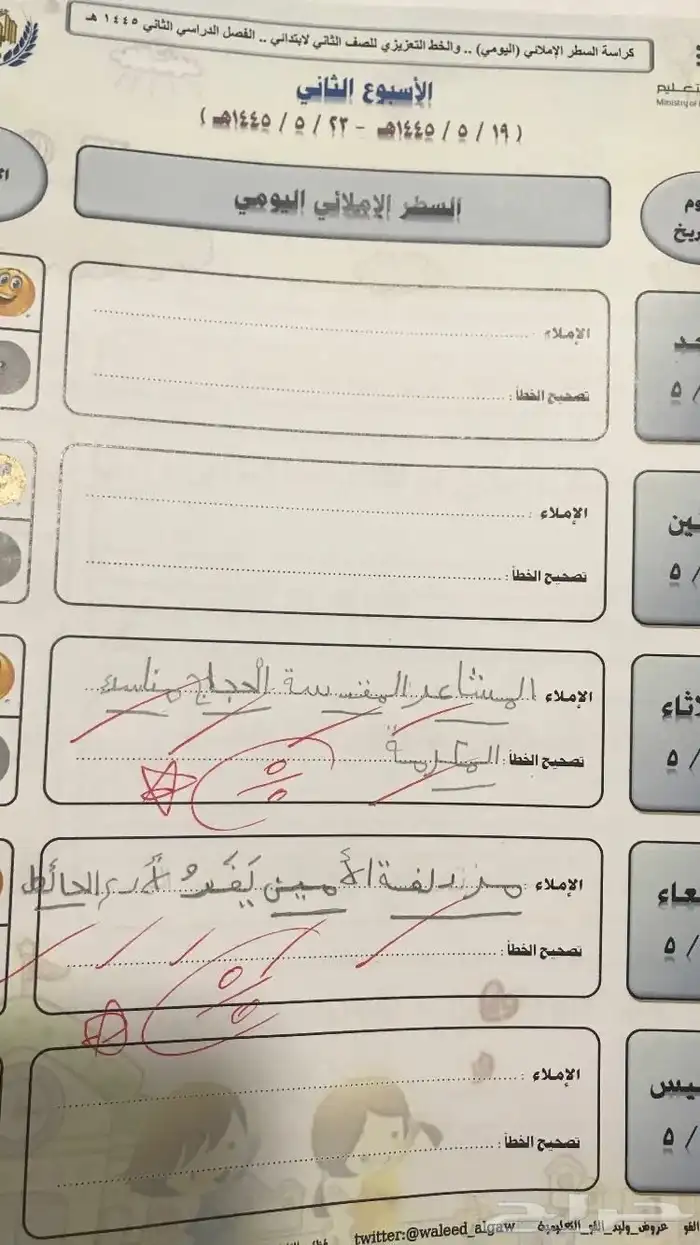 كراسة السطر الإملائي (اليومي) .. والخط التعزيزي للصف الثاني لابتدائي .. الفصل الدراسي الثاني ١٤٤٥ هـ
Ministry of
الأسبوع الثاني
( ١٩ / ٥ / ١٤٤٥هـ - ٢٣ / ٥ / ١٤٤٥هـ )
السطر الإملائي اليومي
الإملاء
تصحيح الخطأ :
٥ /
الإملاء :
تصحيح الخطأ :
٥ /
الإملاء المشاعر المقدسة الحجاج مناسك
تصحيح الخطأ : المكرمة
٥ /
الإملاء : مزدلفة الأمين يَفَدُ أدرع الحائط
تصحيح الخطأ :
٥ /
الإملاء :
تصحيح الخطأ :
٥ /
twitter:@waleed_algaw عروض_وليد_القو_التعليمية
حراج